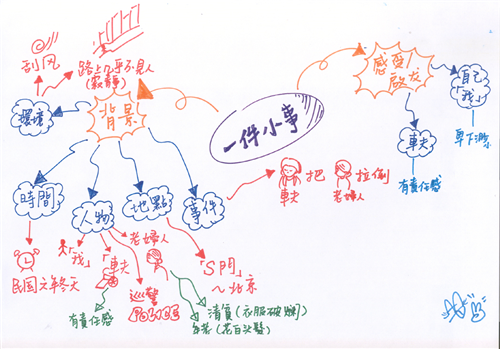 刮风
路上几乎不見人
(寂靜)
環境
背景
一件小事
感受/
啟发
自己
「我」
車夫
有責任感
時間
人物
地點
事件
車夫
把
老婦人
拉倒
民国六年冬天
「我」
車夫
老婦人
巡警
POLICE
「S門」
~北京
有責任感
清貧(衣服破爛)
年老(花白头髮)